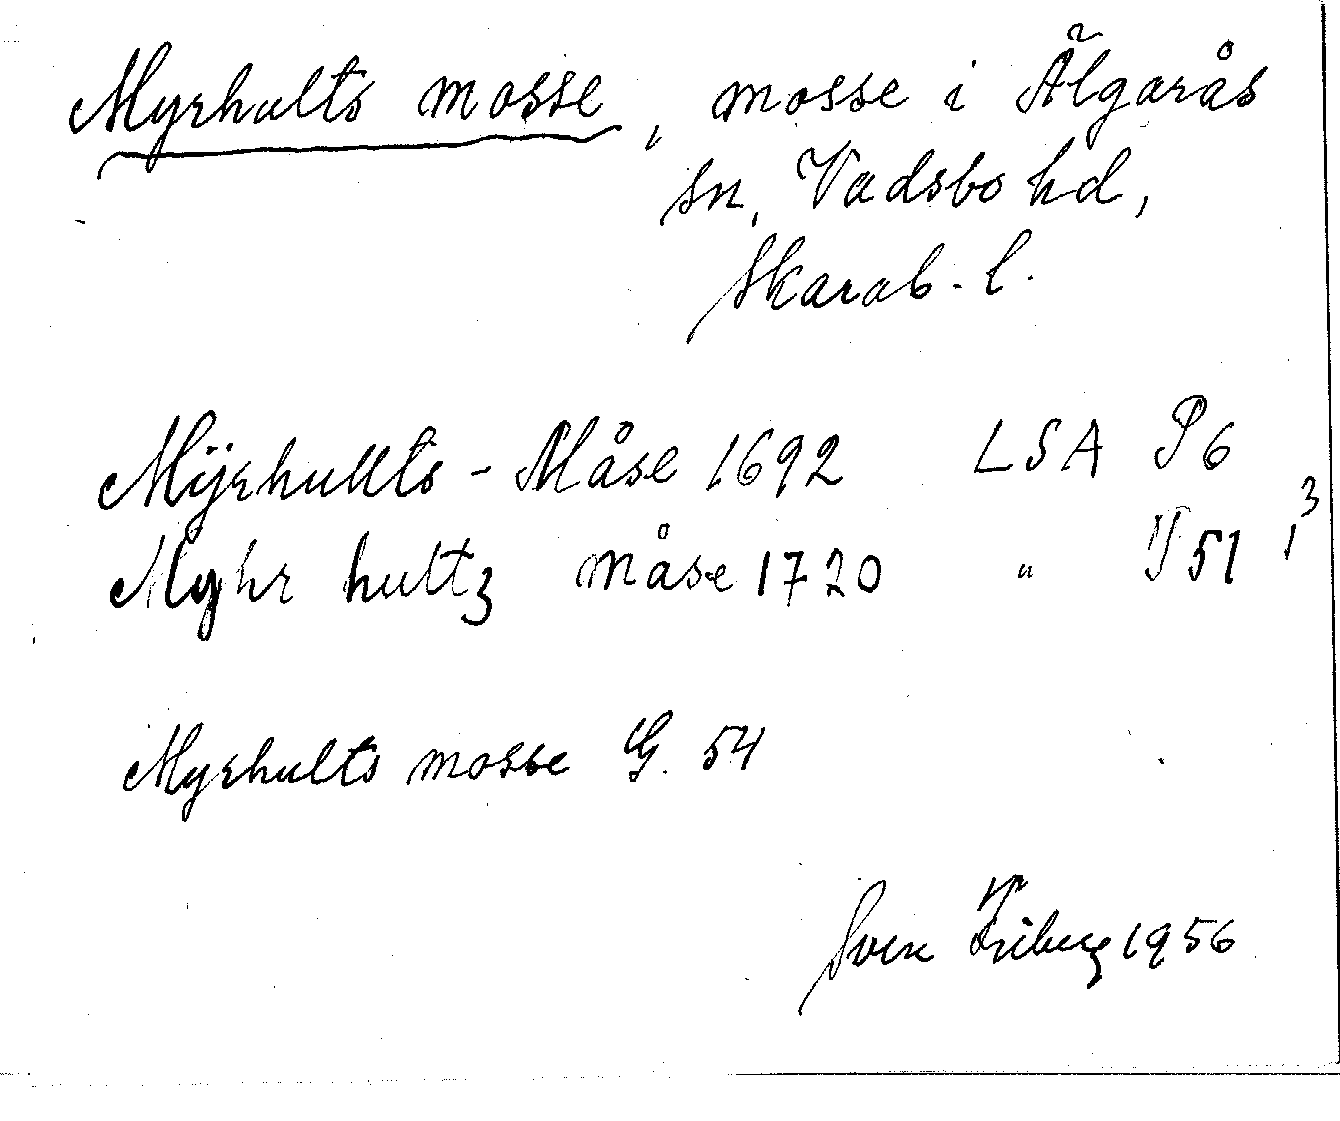 Myrhults mosse, mosse i Älgarås
sn, Vadsbo hd,
Skarab. l.
Mÿrhullts - Måse 1692 LSA P6
Myhr hultz måse 1720 " P51 1³
Myrhults mosse G. 54
Sven Friberg 1956